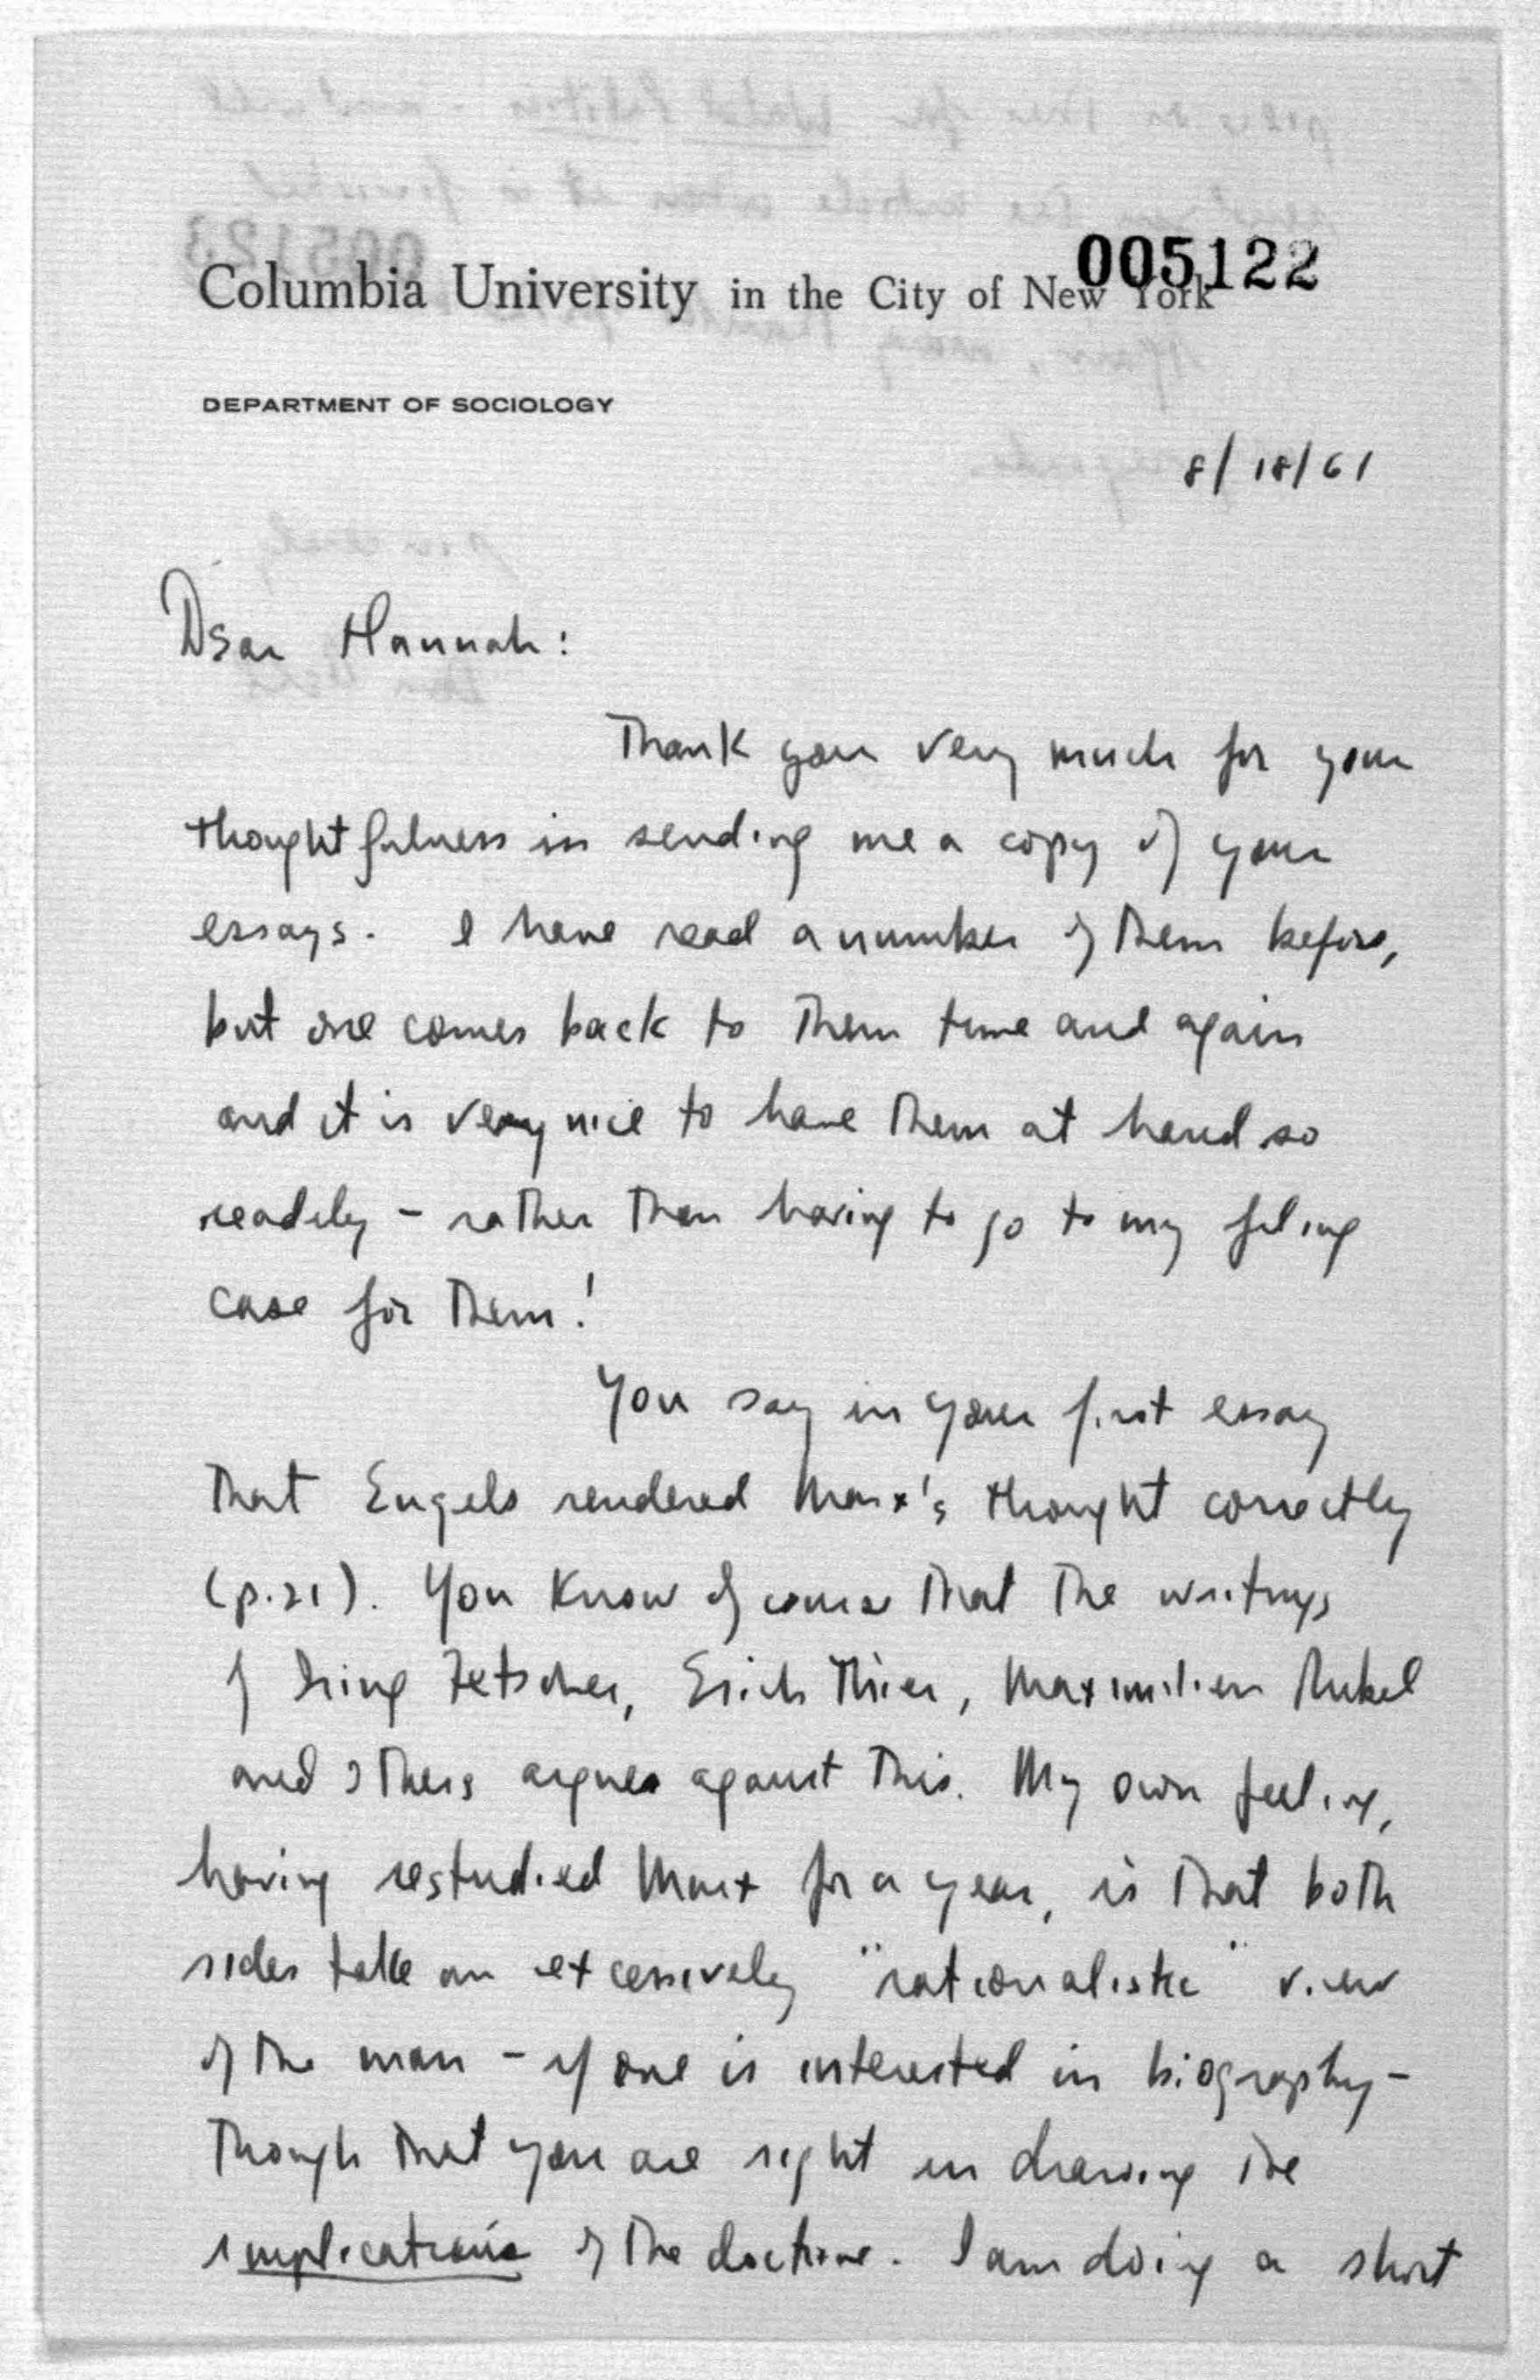 005122
Columbia University in the City of New York
DEPARTMENT OF SOCIOLOGY
8/18/61
Dear Hannah:
Thank you very much for your
thoughtfulness in sending me a copy of your
essays. I have read a number of them before,
but one comes back to them time and again
and it is very nice to have them at hand so
readily – rather than having to go to my filing
case for them!
You say in your first essay
that Engels rendered Marx's thought correctly
(p.21). You know of course that the writings
of Iring Fetscher, Erich Thier, Maximilien Rubel
and others argues against this. My own feeling,
having restudied Marx for a year, is that both
sides take an excessively "rationalistic" view
of the man – if one is interested in biography –
though that you are right in drawing the
implications of the doctrine. I am doing a short